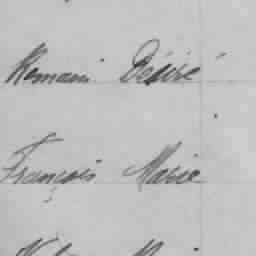 Romain Désiré
François Marie